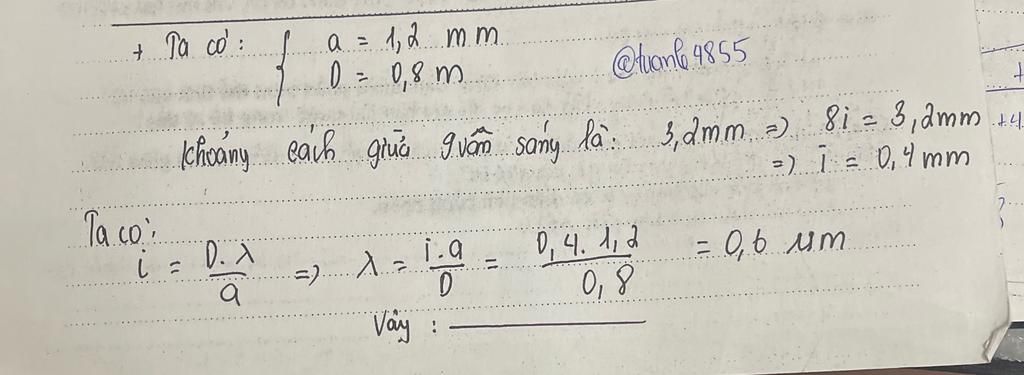 + Ta có: { a = 1,2 mm
D = 0,8 m
@tuanle4855
khoảng cách giữa 9 vân sáng là: 3,2mm => 8i = 3,2mm
=> i = 0,4mm
Ta có:
i = D.λ/a => λ = i.a/D = 0,4.1,2/0,8 = 0,6 μm
Vậy :